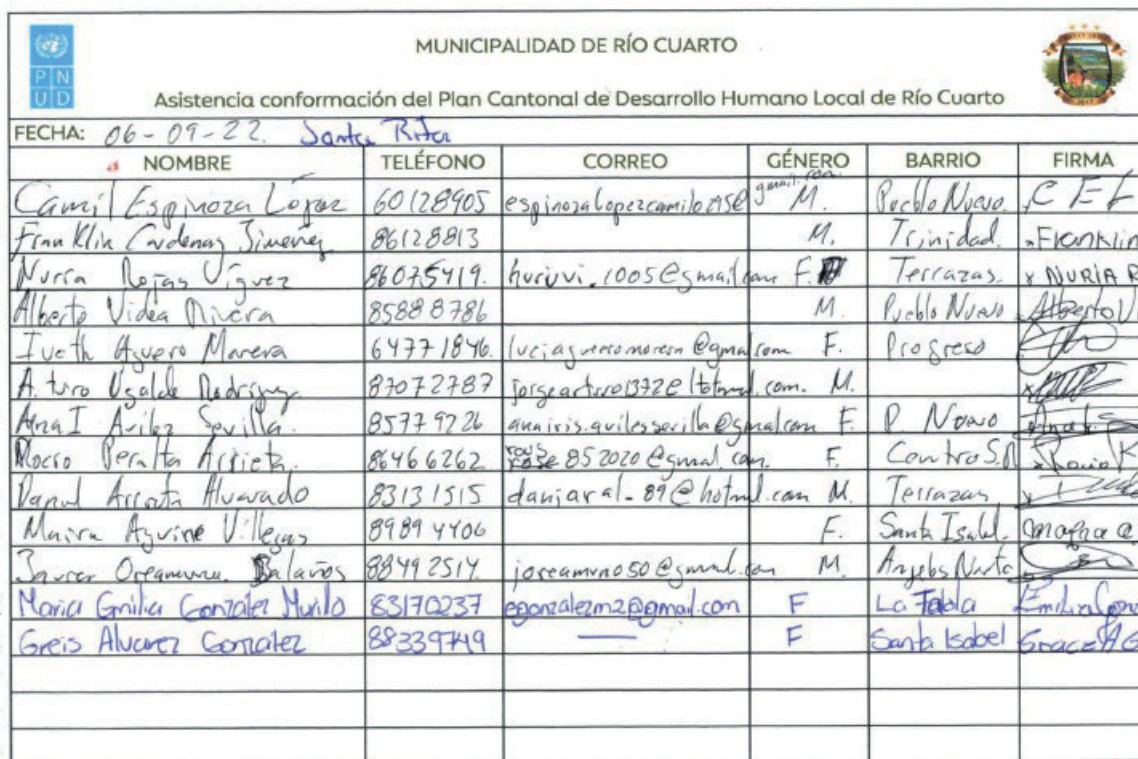 PNUD
MUNICIPALIDAD DE RÍO CUARTO
Asistencia conformación del Plan Cantonal de Desarrollo Humano Local de Río Cuarto
FECHA: 06-09-22. Santa Rita
NOMBRE TELÉFONO CORREO GÉNERO BARRIO FIRMA
Camil Espinoza López 60128905 espinozalopezcamilo295@gmail.com M. Pueblo Nuevo. C E L
Franklin Cardenas Jimenez 86128813 M. Trinidad. Franklin
Nuria Rojas Víguez 86075419. huruvi.1005@gmail.com F. Terrazas. x NURIA R
Alberto Videa Rivera 85888786 M. Pueblo Nuevo Alberto V
Iveth Aguero Morera 64771846. luciaagueromorera@gmal.com F. Progreso
A.turo Ugalde Rodriguez 87072787 jorgearturo1372@ .com. M.
Ana I Avilez Sevilla. 85779226 anairis.avilessevilla@gmal.com F. P Nuevo
Rocio Peralta Arrieta. 86466262 852020@gmal.com. F. Centro S.R
Danul Arrieta Alvarado 83131515 danjaral-89@hotmal.com M. Terrazas
Maira Aguirre Villegas 89894406 F. Santa Isabel.
Oreamuno. Balaños 88492514. joreamuno50@gmal.com M. Angeles Norte
Maria Emilia Gonzalez Murillo 83170237 egonzalezm2@gmail.com F La Tabla Emilia
Greis Alvarez Gonzalez 88339749 — F Santa Isabel Grace A G